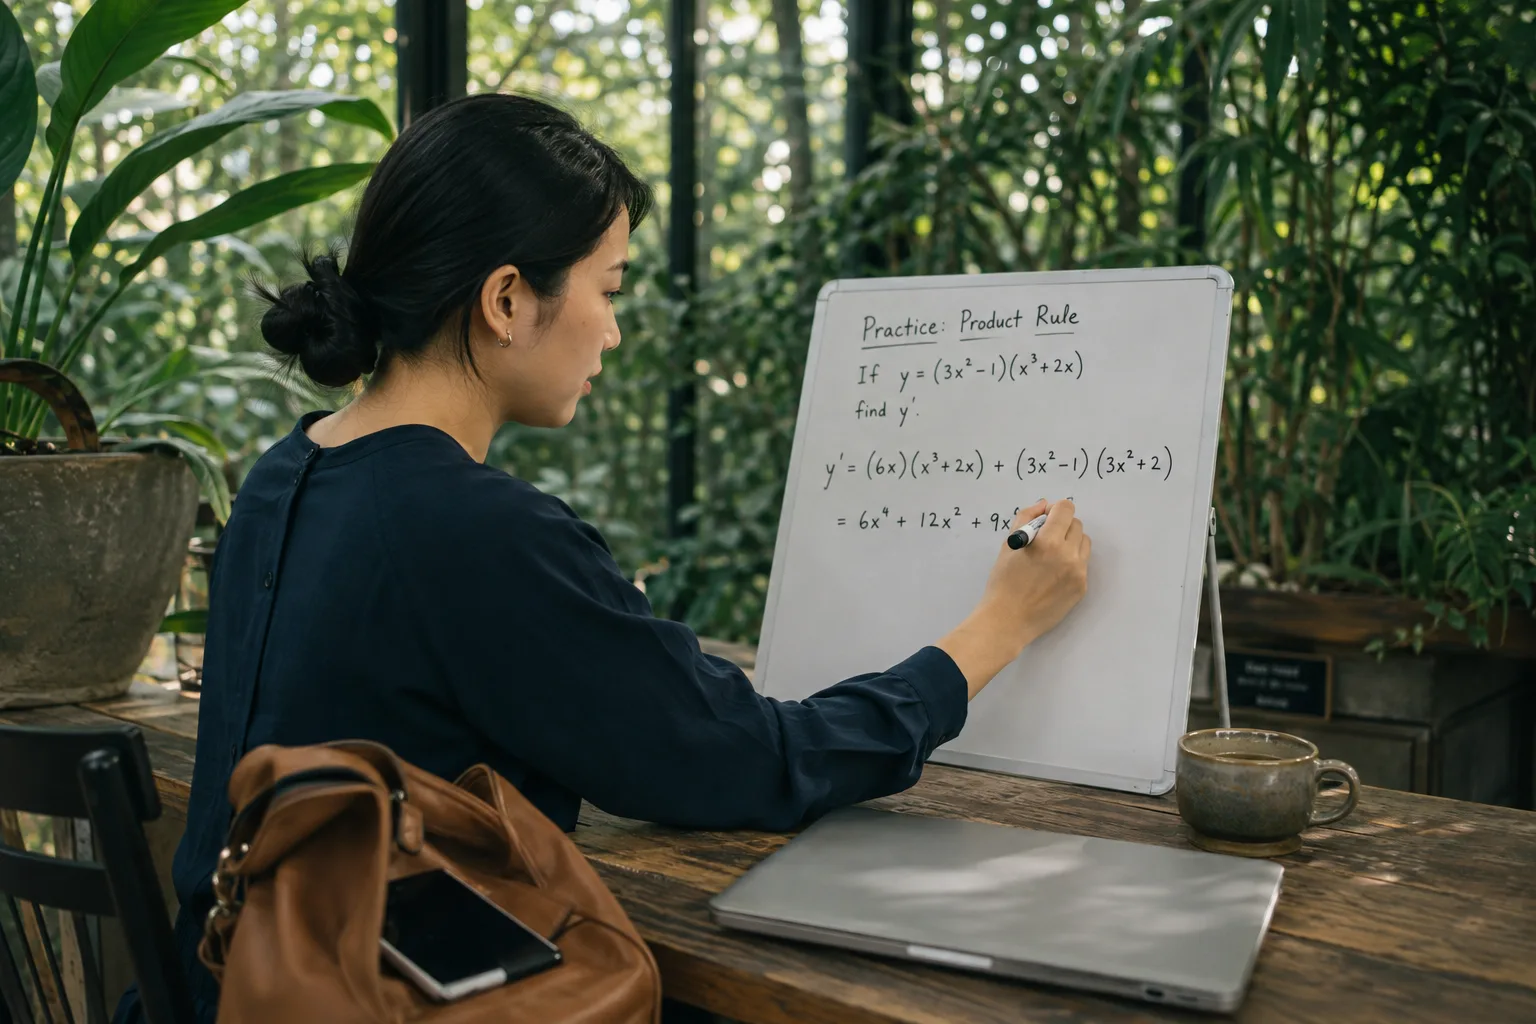 Practice: Product Rule
If y = (3x² - 1)(x³ + 2x)
find y'.
y' = (6x)(x³ + 2x) + (3x² - 1)(3x² + 2)
= 6x⁴ + 12x² + 9x